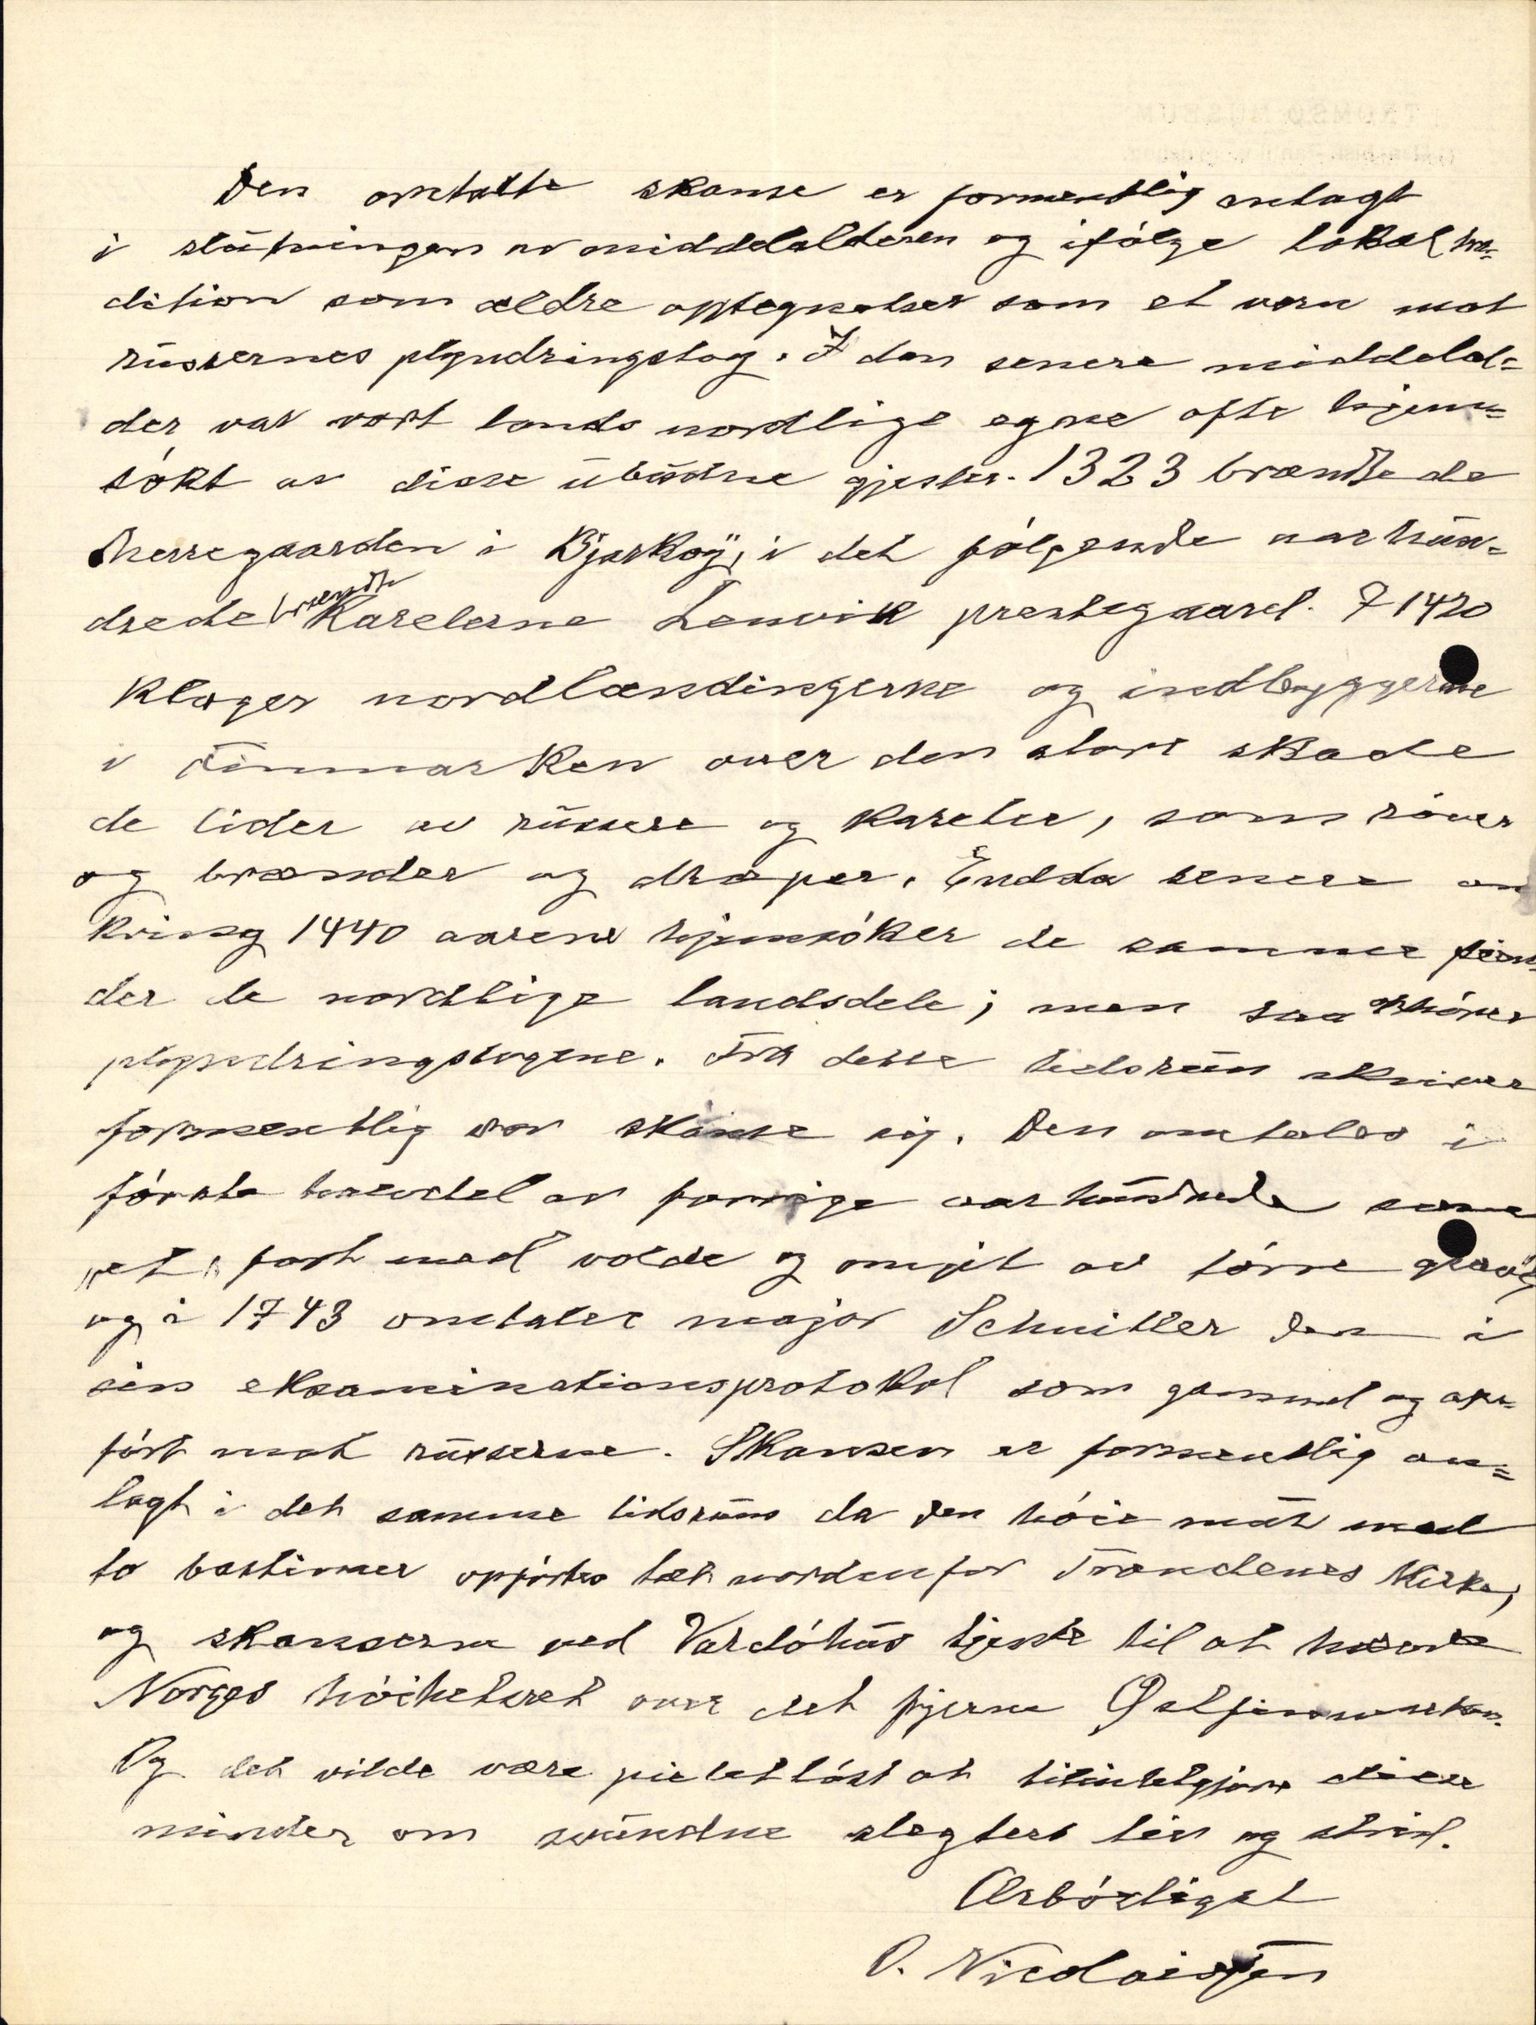 Den omtalte skanse er formentlig anlagt
i slutningen av middelalderen og ifølge lokal tra-
dition som ældre optegnelser som et vern mot
russernes plyndringstog. I den senere middelal-
der var vort lands nordlige egne ofte hjem-
søkt av disse ubudne gjester. 1323 brændte de
herregaarden i Bjarkøy, i det følgende aarhun-
drede brændte Karelerne Lenvik prestegaard. I 1420
klager nordlændingerne og indbyggerne
i Finmarken over den store skade
de lider av russere og kareler, som røver
og brænder og dræper. Endda senere om
kring 1440 aarene hjemsøker de samme fien
der de nordlige landsdele; men saa ophører
plyndringstogene. Fra dette tidsrum skriver
formentlig vor skanse sig. Den omtales i
første trediedel av forrige aarhundrede som
"et fort med volde og omgit av tørre grav"
og i 1743 omtaler major Schnitler den i
sin eksaminationsprotokol som gammel og op-
ført mot russerne. Skansen er formentlig an-
lagt i det samme tidsrum da den høie mur med
to bastioner opførtes tæt nordenfor Trondenes kirke,
og skanserne ved Vardøhus tjente til at hævde
Norges høihetsret over det fjerne Østfinmarken.
Og det vilde være pietetløst at tilintetgjøre disse
minder om svundne slegters liv og strid.
Ærbødigst
O. Nicolaissen